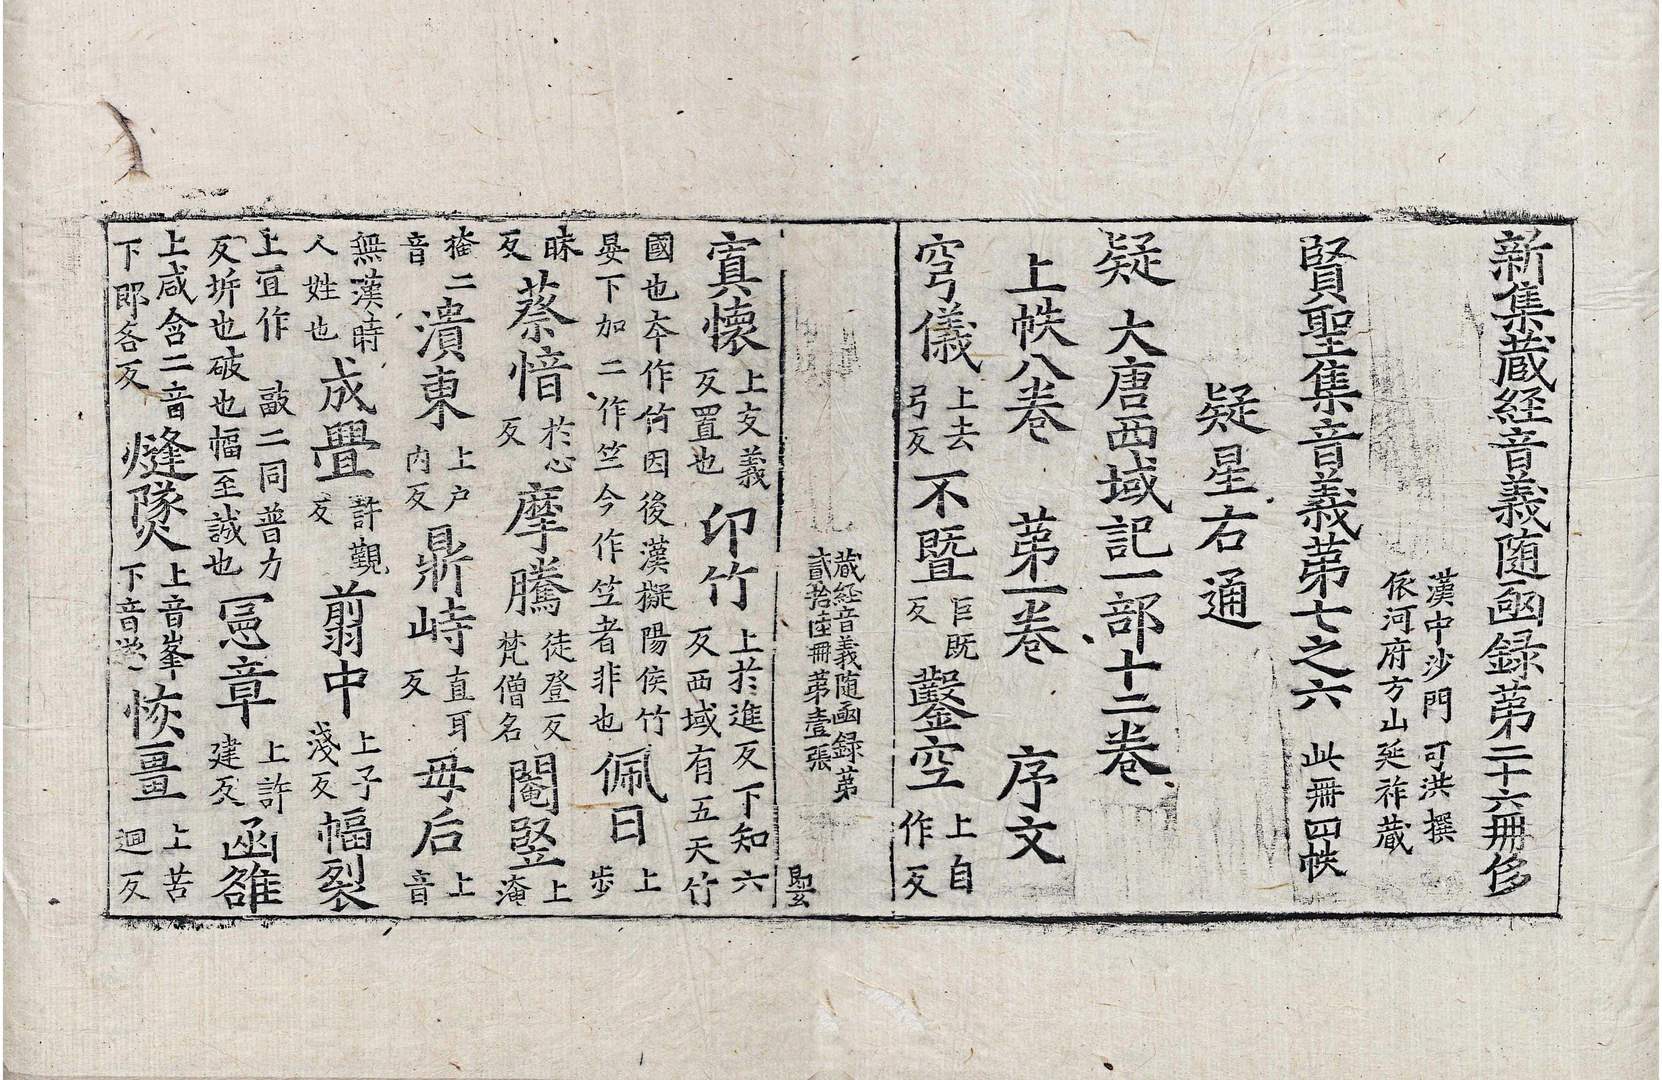 新集藏経音義随凾録苐二十六冊侈
漢中沙門　可洪　撰
依河府方山延祚藏
賢聖集音義苐七之六　此冊四帙
疑星右通
疑　大唐西域記一部十二巻
上帙八巻　苐一巻　序文
穹儀
上去
弓反
不曁
巨既
反
鑿空
上自
作反
藏経音義随凾録苐
貳拾陸冊苐壹張
寘懷
上支義
反置也
卬竹
上扵進反下知六
反西域有五天竹
國也夲作竹因後漢擬陽侯竹
晏下加二作竺今作竺者非也
佩日
上
歩
昧
反
蔡愔
扵心
反
摩騰
徒登反
梵僧名
閹竪
上
淹
㩉二
音
潰東
上户
内反
鼎峙
直耳
反
毋后
上
音
無漢時
人姓也
成疊
許覲
反
翦中
上子
淺反
幅裂
上冝作　㪏二同普力
反坼也破也幅至誠也
冨章
上許
建反
函雒
上咸含二音
下郎各反
㷭隊
上音峯
下音遂
恢畺
上苦
迴反